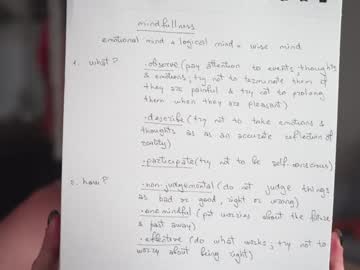 mindfullness
emotional mind + logical mind = wise mind
1. what?
· observe (pay attention to events, thoughts
& emotions; try not to terminate them if
they are painful & try not to prolong
them when they are pleasant)
· describe (try not to take emotions &
thoughts as as an accurate reflection of
reality)
· participate (try not to be self-conscious)
2. how?
· non-judgemental (do not judge things
as bad or good, right or wrong)
· one mindful (put worries about the future
& past away)
· effective (do what works; try not to
worry about being right)